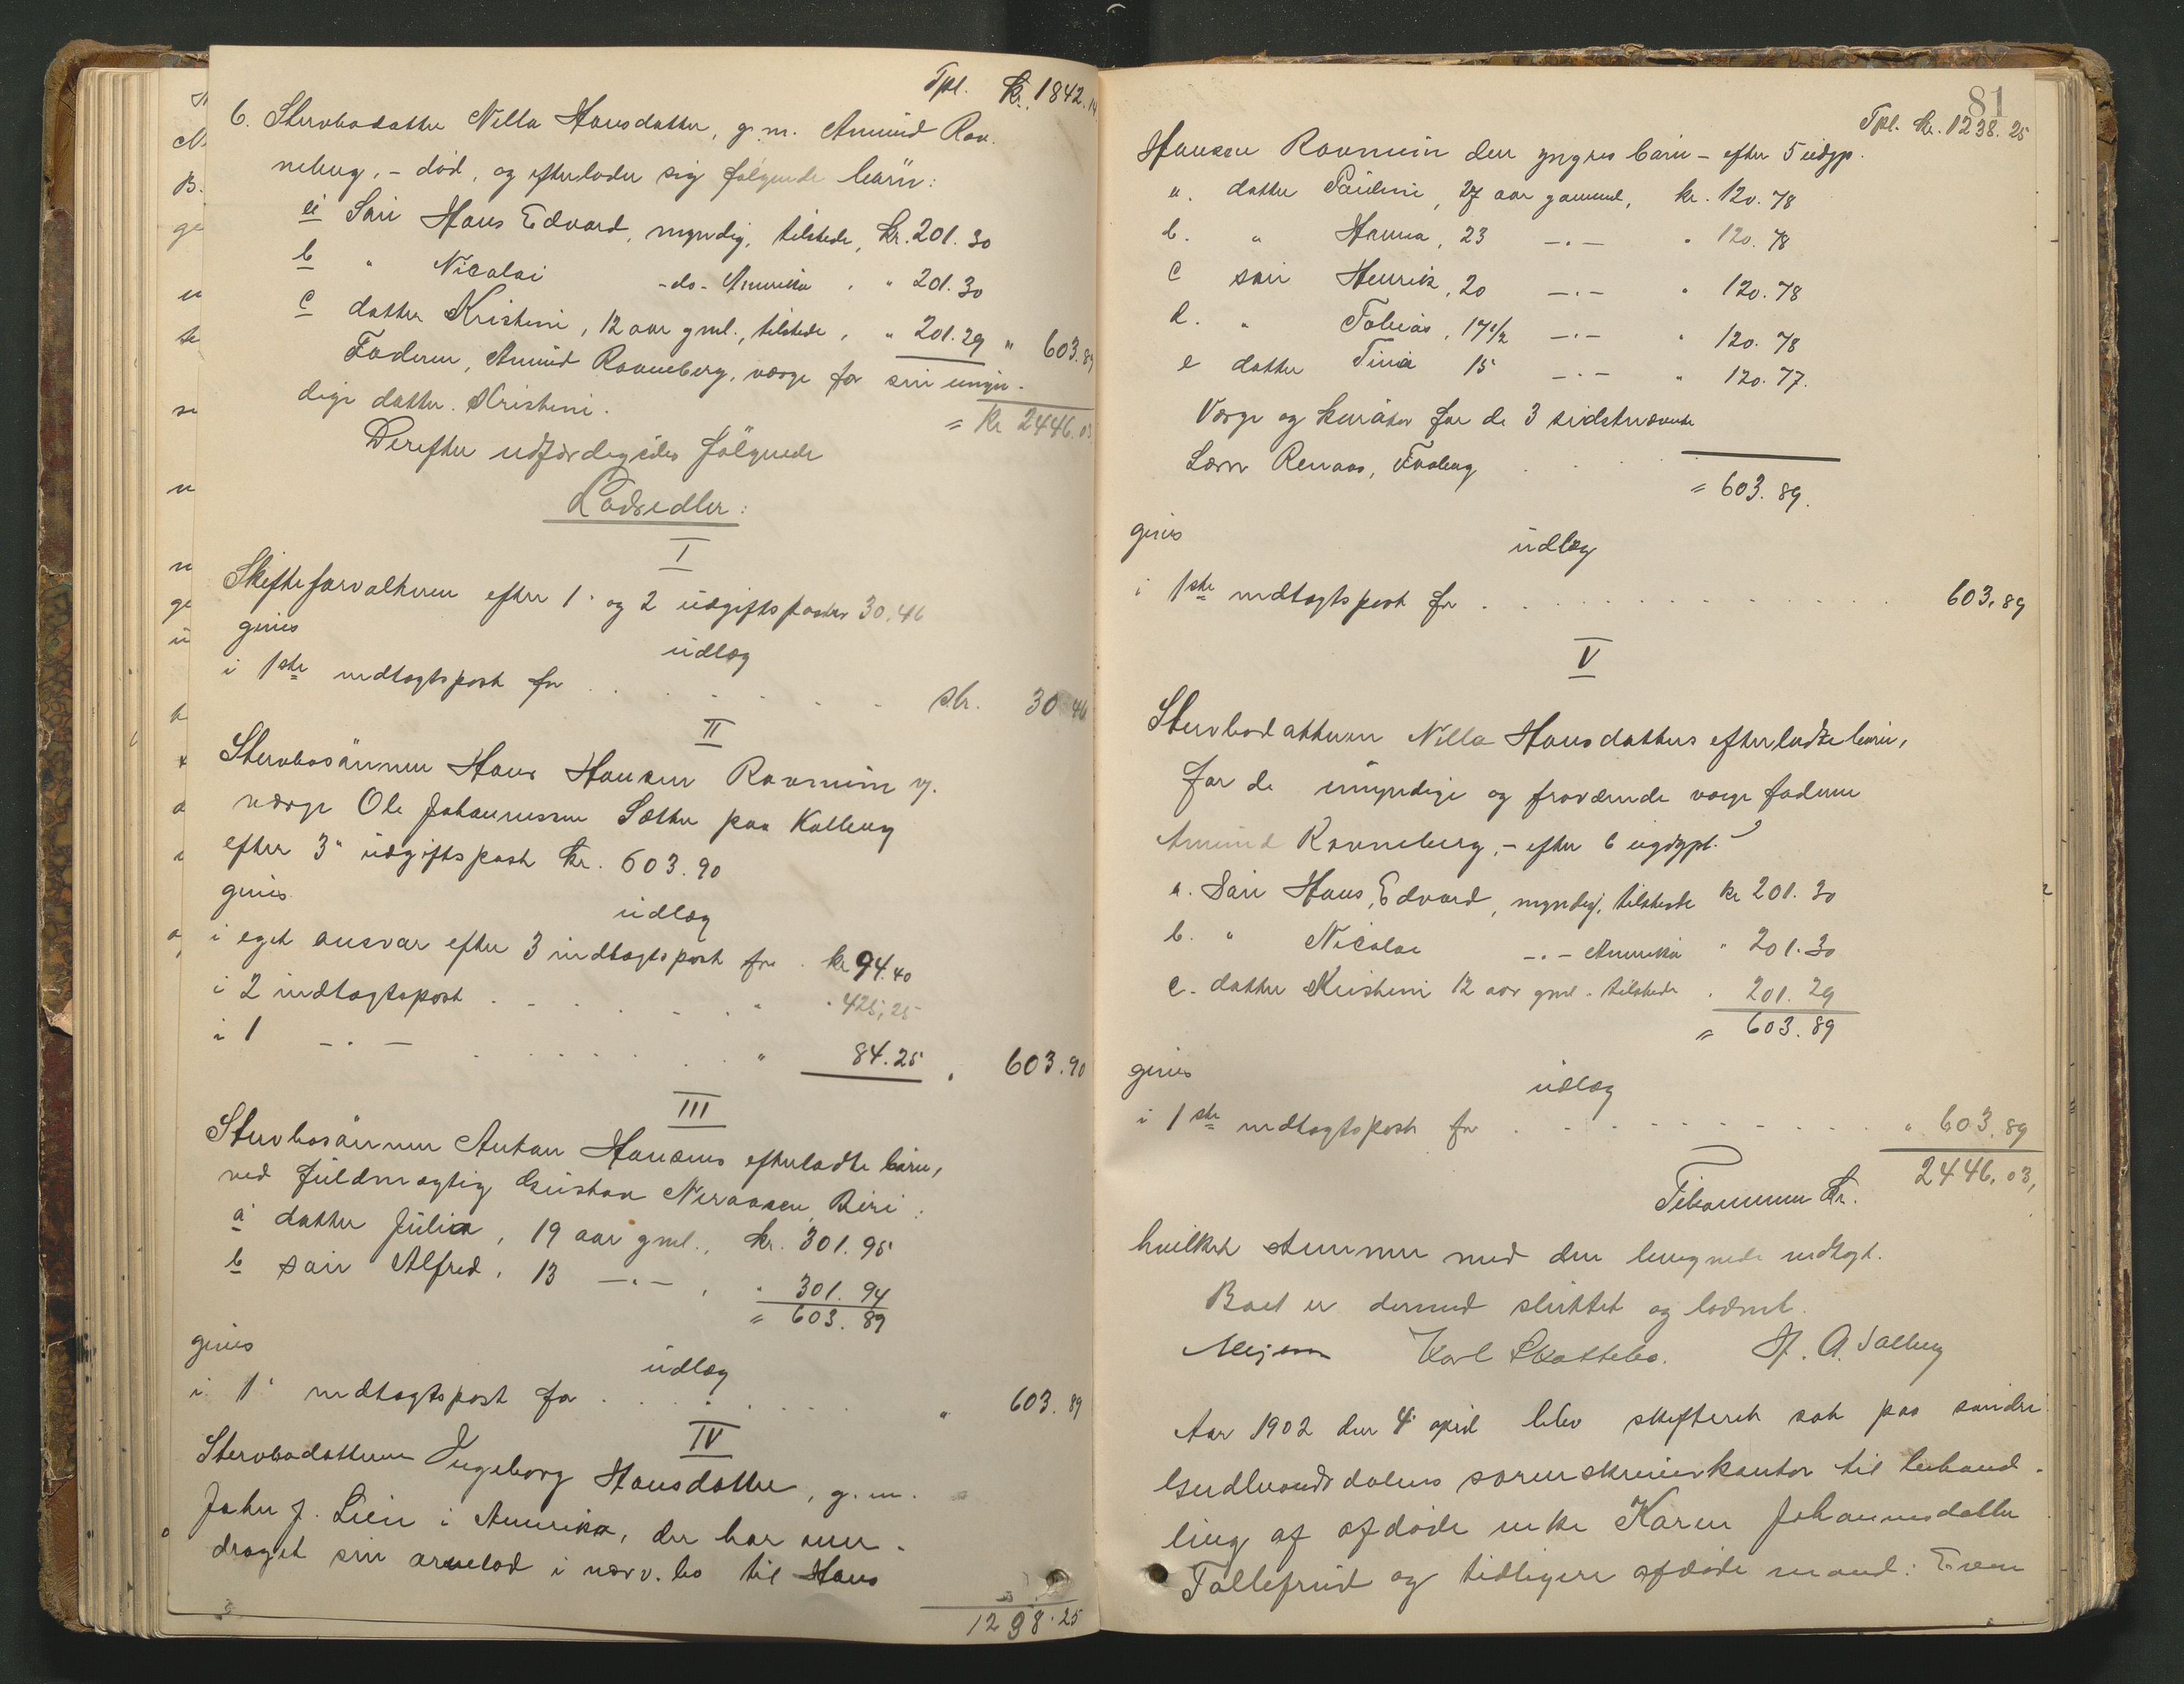 Tpl. kr. 1842.14
6. Stervbodatter Nilla Hansdatter, g.m. Amund Rov-
neberg, - død, og efterlader sig følgende børn:
a Søn Hans Edvard, myndig, tilstede, kr. 201.30
b " Nicolai -do- Amerika " 201.30
c datter Kristine, 12 aar gml., tilstede, " 201.29 " 603.89
Faderen, Amund Rovneberg, værge for sin umyn-
dige datter Kristine.
= kr 2446.03
Derefter udfærdigedes følgende
Lodsedler:
I
Skifteforvalteren efter 1. og 2 udgiftsposter 30.46
gives
udlæg
i 1ste indtægtspost for . . . . . kr. 30.46
II
Stervbosønnen Hans Hansen Rovneim y.
værge Ole Johannessen Sæther paa Kolberg
efter 3. udgiftspost kr. 603.90
gives
udlæg
i eget ansvar efter 3 indtægtspost for . kr 94.40
i 2 indtægtspost . . . . . " 425,25
i 1 -.- . . . . . " 84.25 " 603.90
III
Stervbosønnen Anton Hansens efterladte børn,
ved fuldmægtig Gustav Neraasen, Biri:
a datter Julia, 19 aar gml., kr. 301.95
b søn Alfred, 13 -.- , " 301.94
= 603.89
gives
udlæg
i 1. indtægtspost for . . . . . " 603.89
IV
Stervbodatteren Ingeborg Hansdatter, g.m.
John J. Lien i Amerika, der har over-
draget sin arvelod i nærv. bo til Hans
1238.25
81
Tpl. kr. 1238.25
Hansen Rovneim den yngres børn - efter 5 udgp.
a. datter Pauline, 27 aar gammel, kr. 120.78
b. " Hanna, 23 -.- " 120.78
c søn Henrik, 20 -.- " 120.78
d. " Tobias, 17 1/2 -.- " 120.78
e datter Tina 15 -.- " 120.77.
Værge og kurator for de 3 sidstnævnte
Lars Renaas, Faaberg . . .
= 603.89.
gives
udlæg
i 1ste indtægtspost for . . . . . 603,89
V
Stervbodatteren Nilla Hansdatters efterladte børn,
for de umyndige og fraværende værge faderen
Amund Rovneberg, - efter 6 udgpt.
a. Søn Hans Edvard, myndig, tilstede kr 201.30
b. " Nicolai -.- Amerika " 201.30
c. datter Kristine 12 aar gml. tilstede " 201.29
= 603.89
gives
udlæg
i 1ste indtægtspost for . . . . . " 603.89
Tilsammen kr. 2446,03,
hvilket stemmer med den beregnede indtægt.
Boet er dermed sluttet og lodnet.
Karl Skattebo. H. A. Solberg
Aar 1902 den 4. april blev skifteret sat paa søndre
Gudbrandsdalens sorenskriverkontor til behand-
ling af afdøde enke Karen Johannesdatter
Tollefrud og tidligere afdøde mand: Even